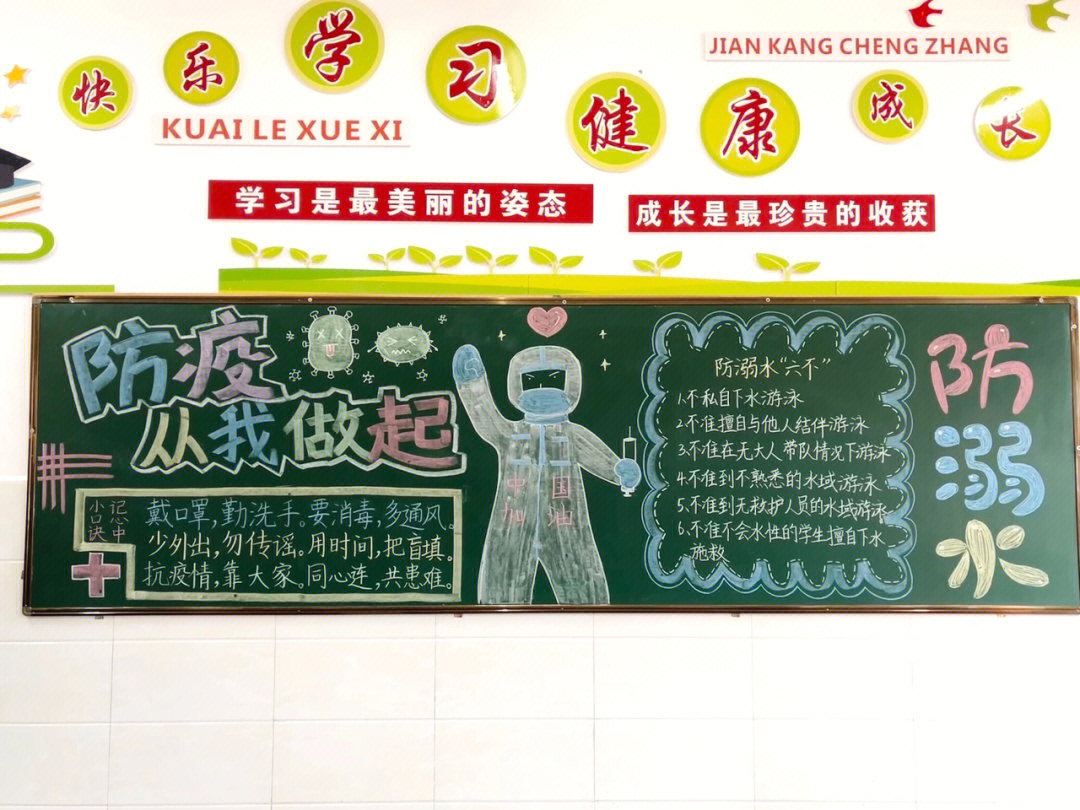 快乐学习健康成长
KUAI LE XUE XI
JIAN KANG CHENG ZHANG
学习是最美丽的姿态
成长是最珍贵的收获
防疫
从我做起
小口诀
记心中
戴口罩,勤洗手。要消毒,多通风。
少外出,勿传谣。用时间,把盲填。
抗疫情,靠大家。同心连,共患难。
中国
加油
防溺水“六不”
1.不私自下水游泳
2.不准擅自与他人结伴游泳
3.不准在无大人带队情况下游泳
4.不准到不熟悉的水域游泳
5.不准到无救护人员的水域游泳
6.不准不会水性的学生擅自下水
施救
防溺水